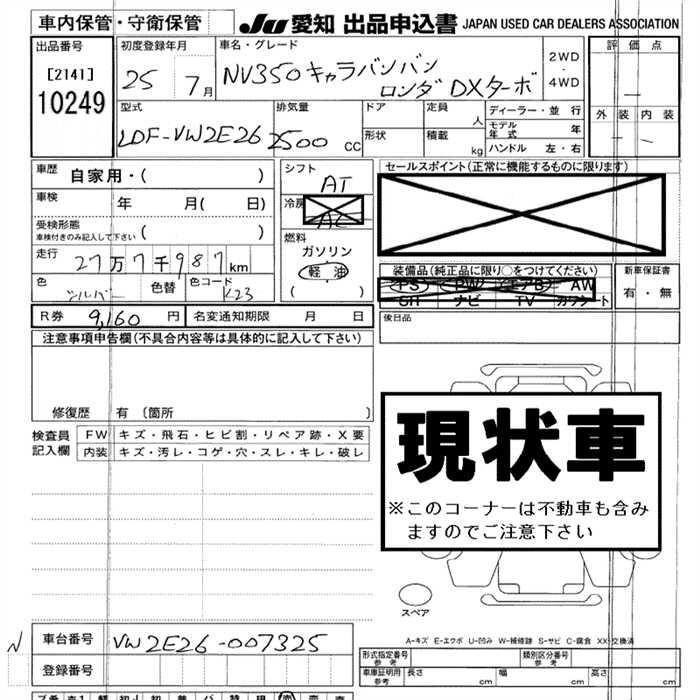 車内保管・守衛保管
JU 愛知 出品申込書 JAPAN USED CAR DEALERS ASSOCIATION
出品番号
[2141]
10249
初度登録年月
25 7月
車名・グレード
NV350キャラバンバン
ロングDXターボ
2WD
・
4WD
評価点
外装 内装
型式
LDF-VW2E26
排気量
2500 CC
ドア
形状
定員 人
積載 kg
ディーラー・並行
モデル年式 年
ハンドル 左・右
車歴
自家用・( )
車検 年 月( 日)
受検形態
(車検付きのみ記入して下さい)
走行
27万7千987km
色
シルバー
色替
色コード
K23
シフト
AT
冷房
AC
燃料
ガソリン
軽油
( )
セールスポイント(正常に機能するものに限ります)
装備品(純正品に限り○をつけてください)
PS PW エアB AW
SR ナビ TV カワシート
新車保証書
有・無
R券 9,160 円
名変通知期限 月 日
後日品
注意事項申告欄(不具合内容等は具体的に記入して下さい)
修復歴 有〔箇所 〕
検査員
記入欄
FW キズ・飛石・ヒビ割・リペア跡・X要
内装 キズ・汚レ・コゲ・穴・スレ・キレ・破レ
現状車
※このコーナーは不動車も含み
ますのでご注意下さい
スペア
A-キズ E-エクボ U-凹み W-補修跡 S-サビ C-腐食 XX-交換済
N
車台番号 VW2E26-007325
登録番号
形式指定番号
参考
類別区分番号
参考
車庫証明用
参考
長さ cm 幅 cm 高さ cm